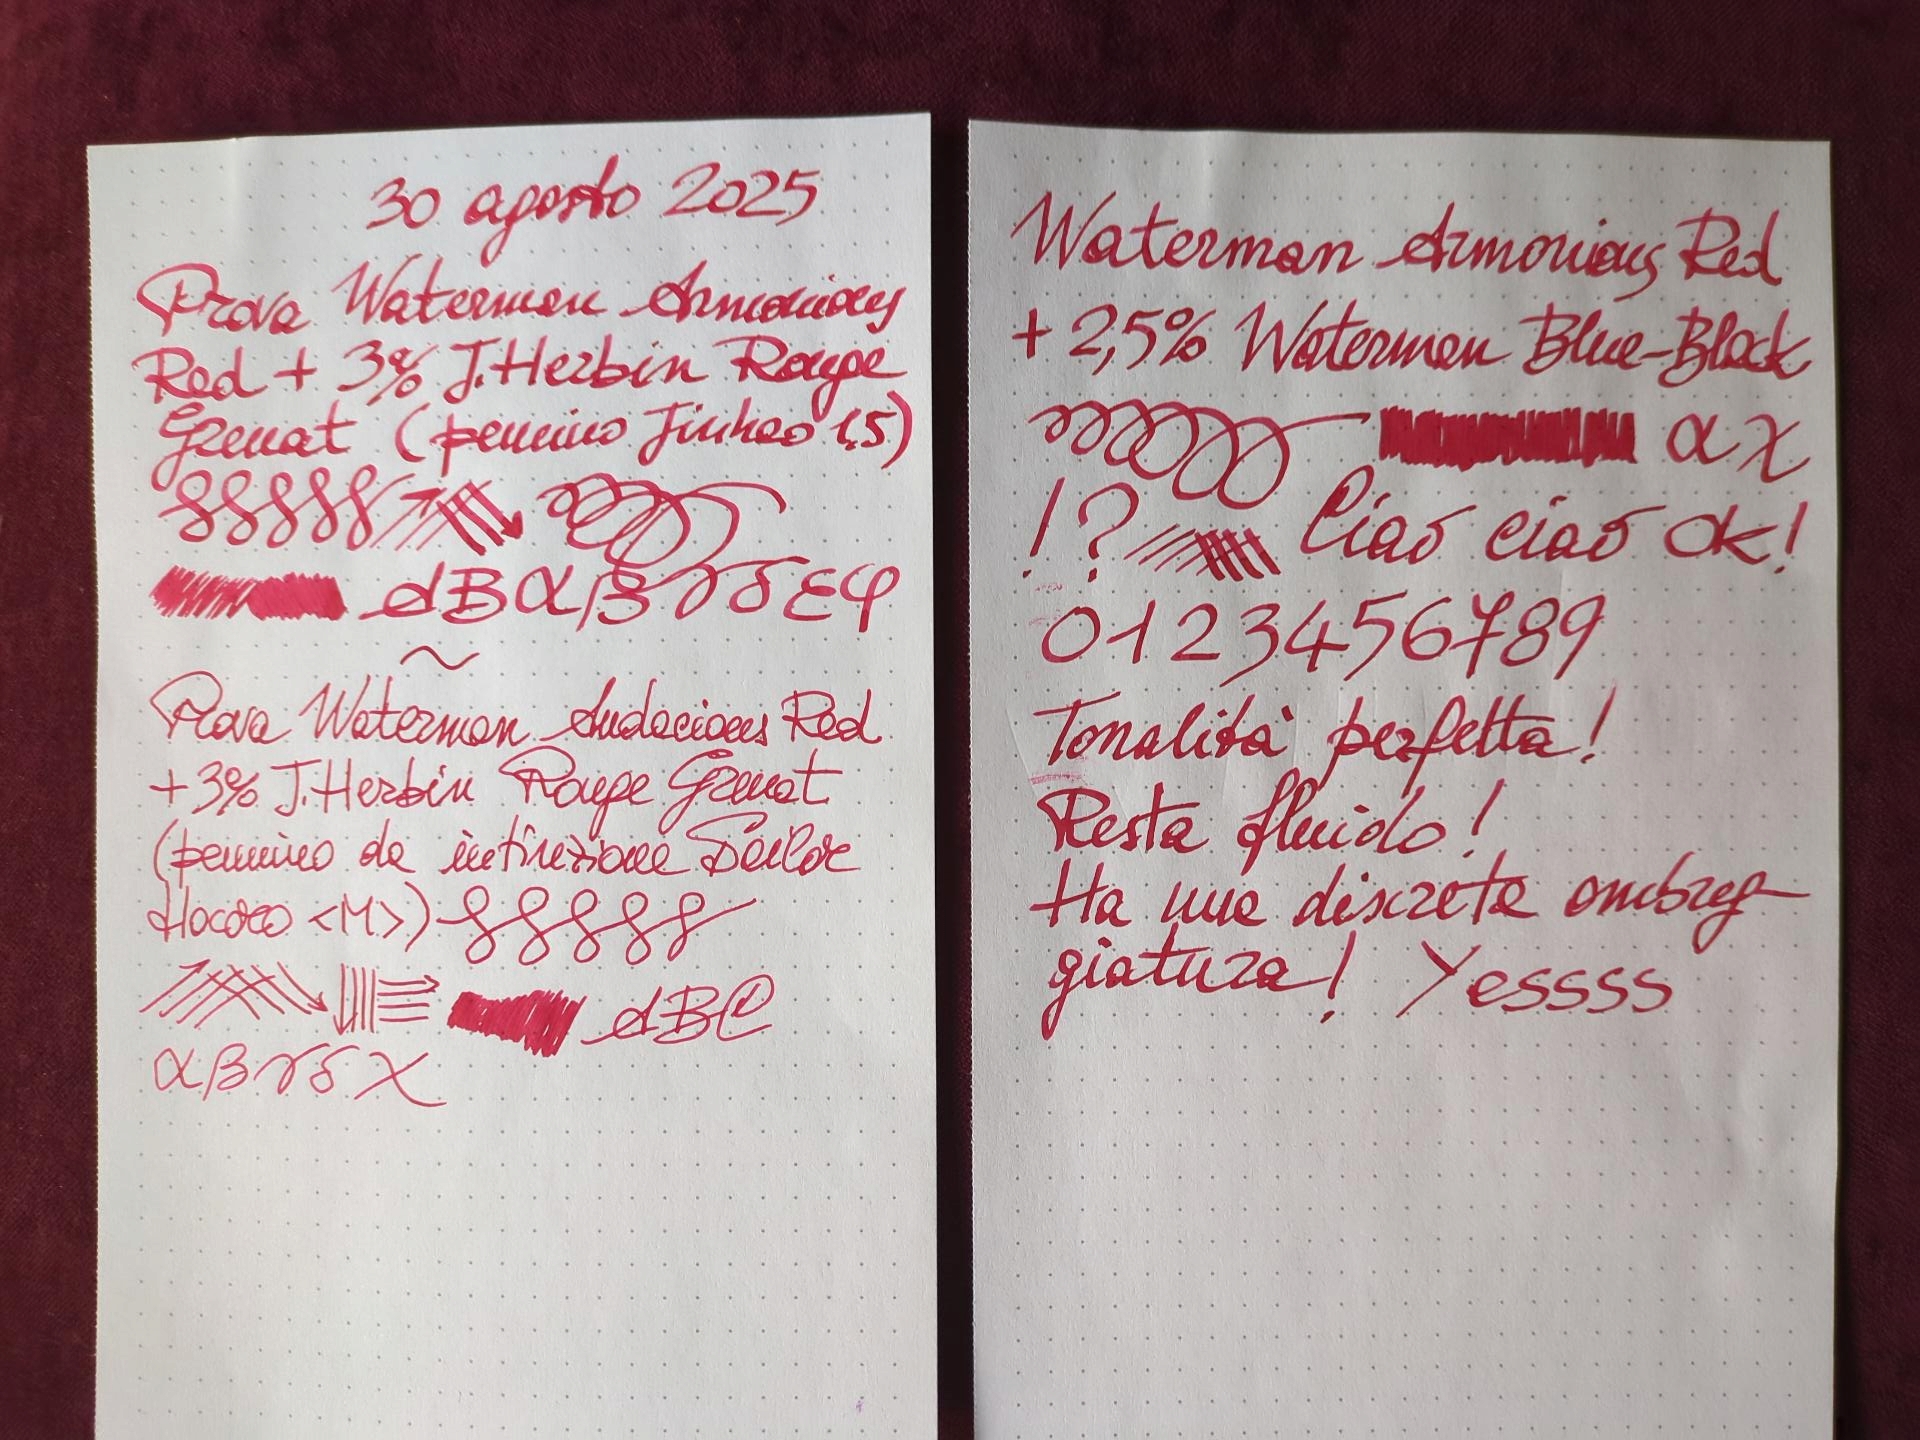 30 agosto 2025
Prova Waterman Armonious
Red + 3% J.Herbin Rouge
Grenat (pennino Jinhao 1.5)
ABαβγδεφ
~
Prova Waterman Audacious Red
+3% J.Herbin Rouge Grenat
(pennino da intinzione Sailor
Hocoro <M>)
ABC
αβγδχ
Waterman Armonious Red
+ 2,5% Waterman Blue-Black
αχ
!? Ciao ciao Ok!
0123456789
Tonalità perfetta!
Resta fluido!
Ha una discreta ombreg-
giatura! Yessss